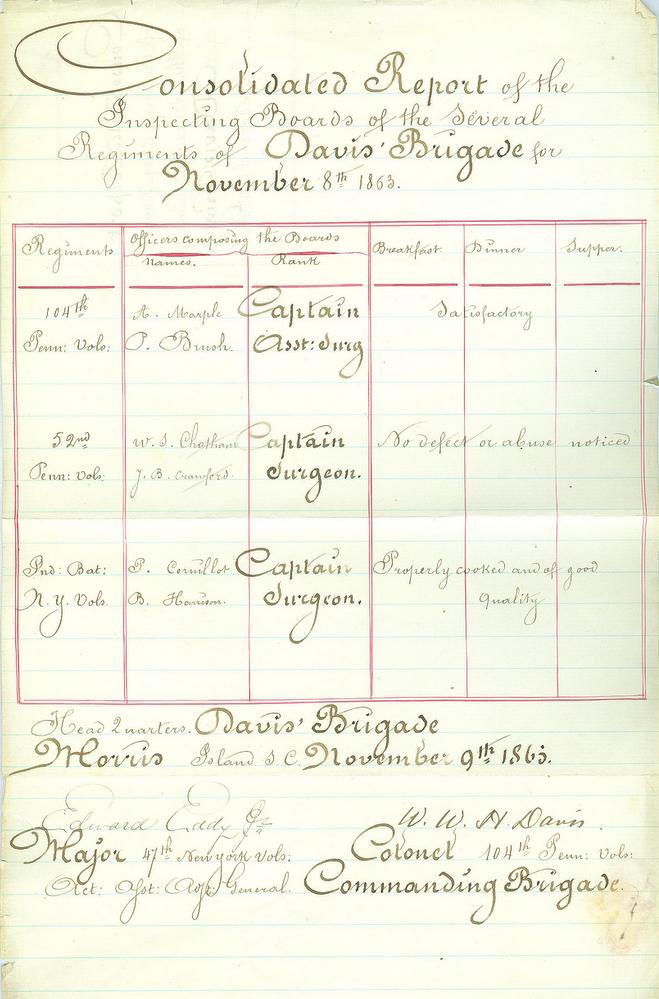 Consolidated Report of the
Inspecting Boards of the Several
Regiments of Davis' Brigade for
November 8th 1863.
Regiments Officers composing the Boards Breakfast Dinner Supper.
Names. Rank
104th A. Marple Captain Satisfactory
Penn: Vols: P. Brush. Asst: Surg
52nd W. S. Chatham Captain No defect or abuse noticed
Penn: Vols: J. B. Crawford. Surgeon.
Ind: Bat: P. Cornillot Captain Properly cooked and of good
N.Y. Vols. B. Harrison. Surgeon. quality
Head Quarters. Davis' Brigade
Morris Island S.C. November 9th 1863.
Edward Eddy Jr W. W. H. Davis.
Major 47th New York Vols: Colonel 104th Penn: Vols:
Act: Asst: Agt: General. Commanding Brigade.